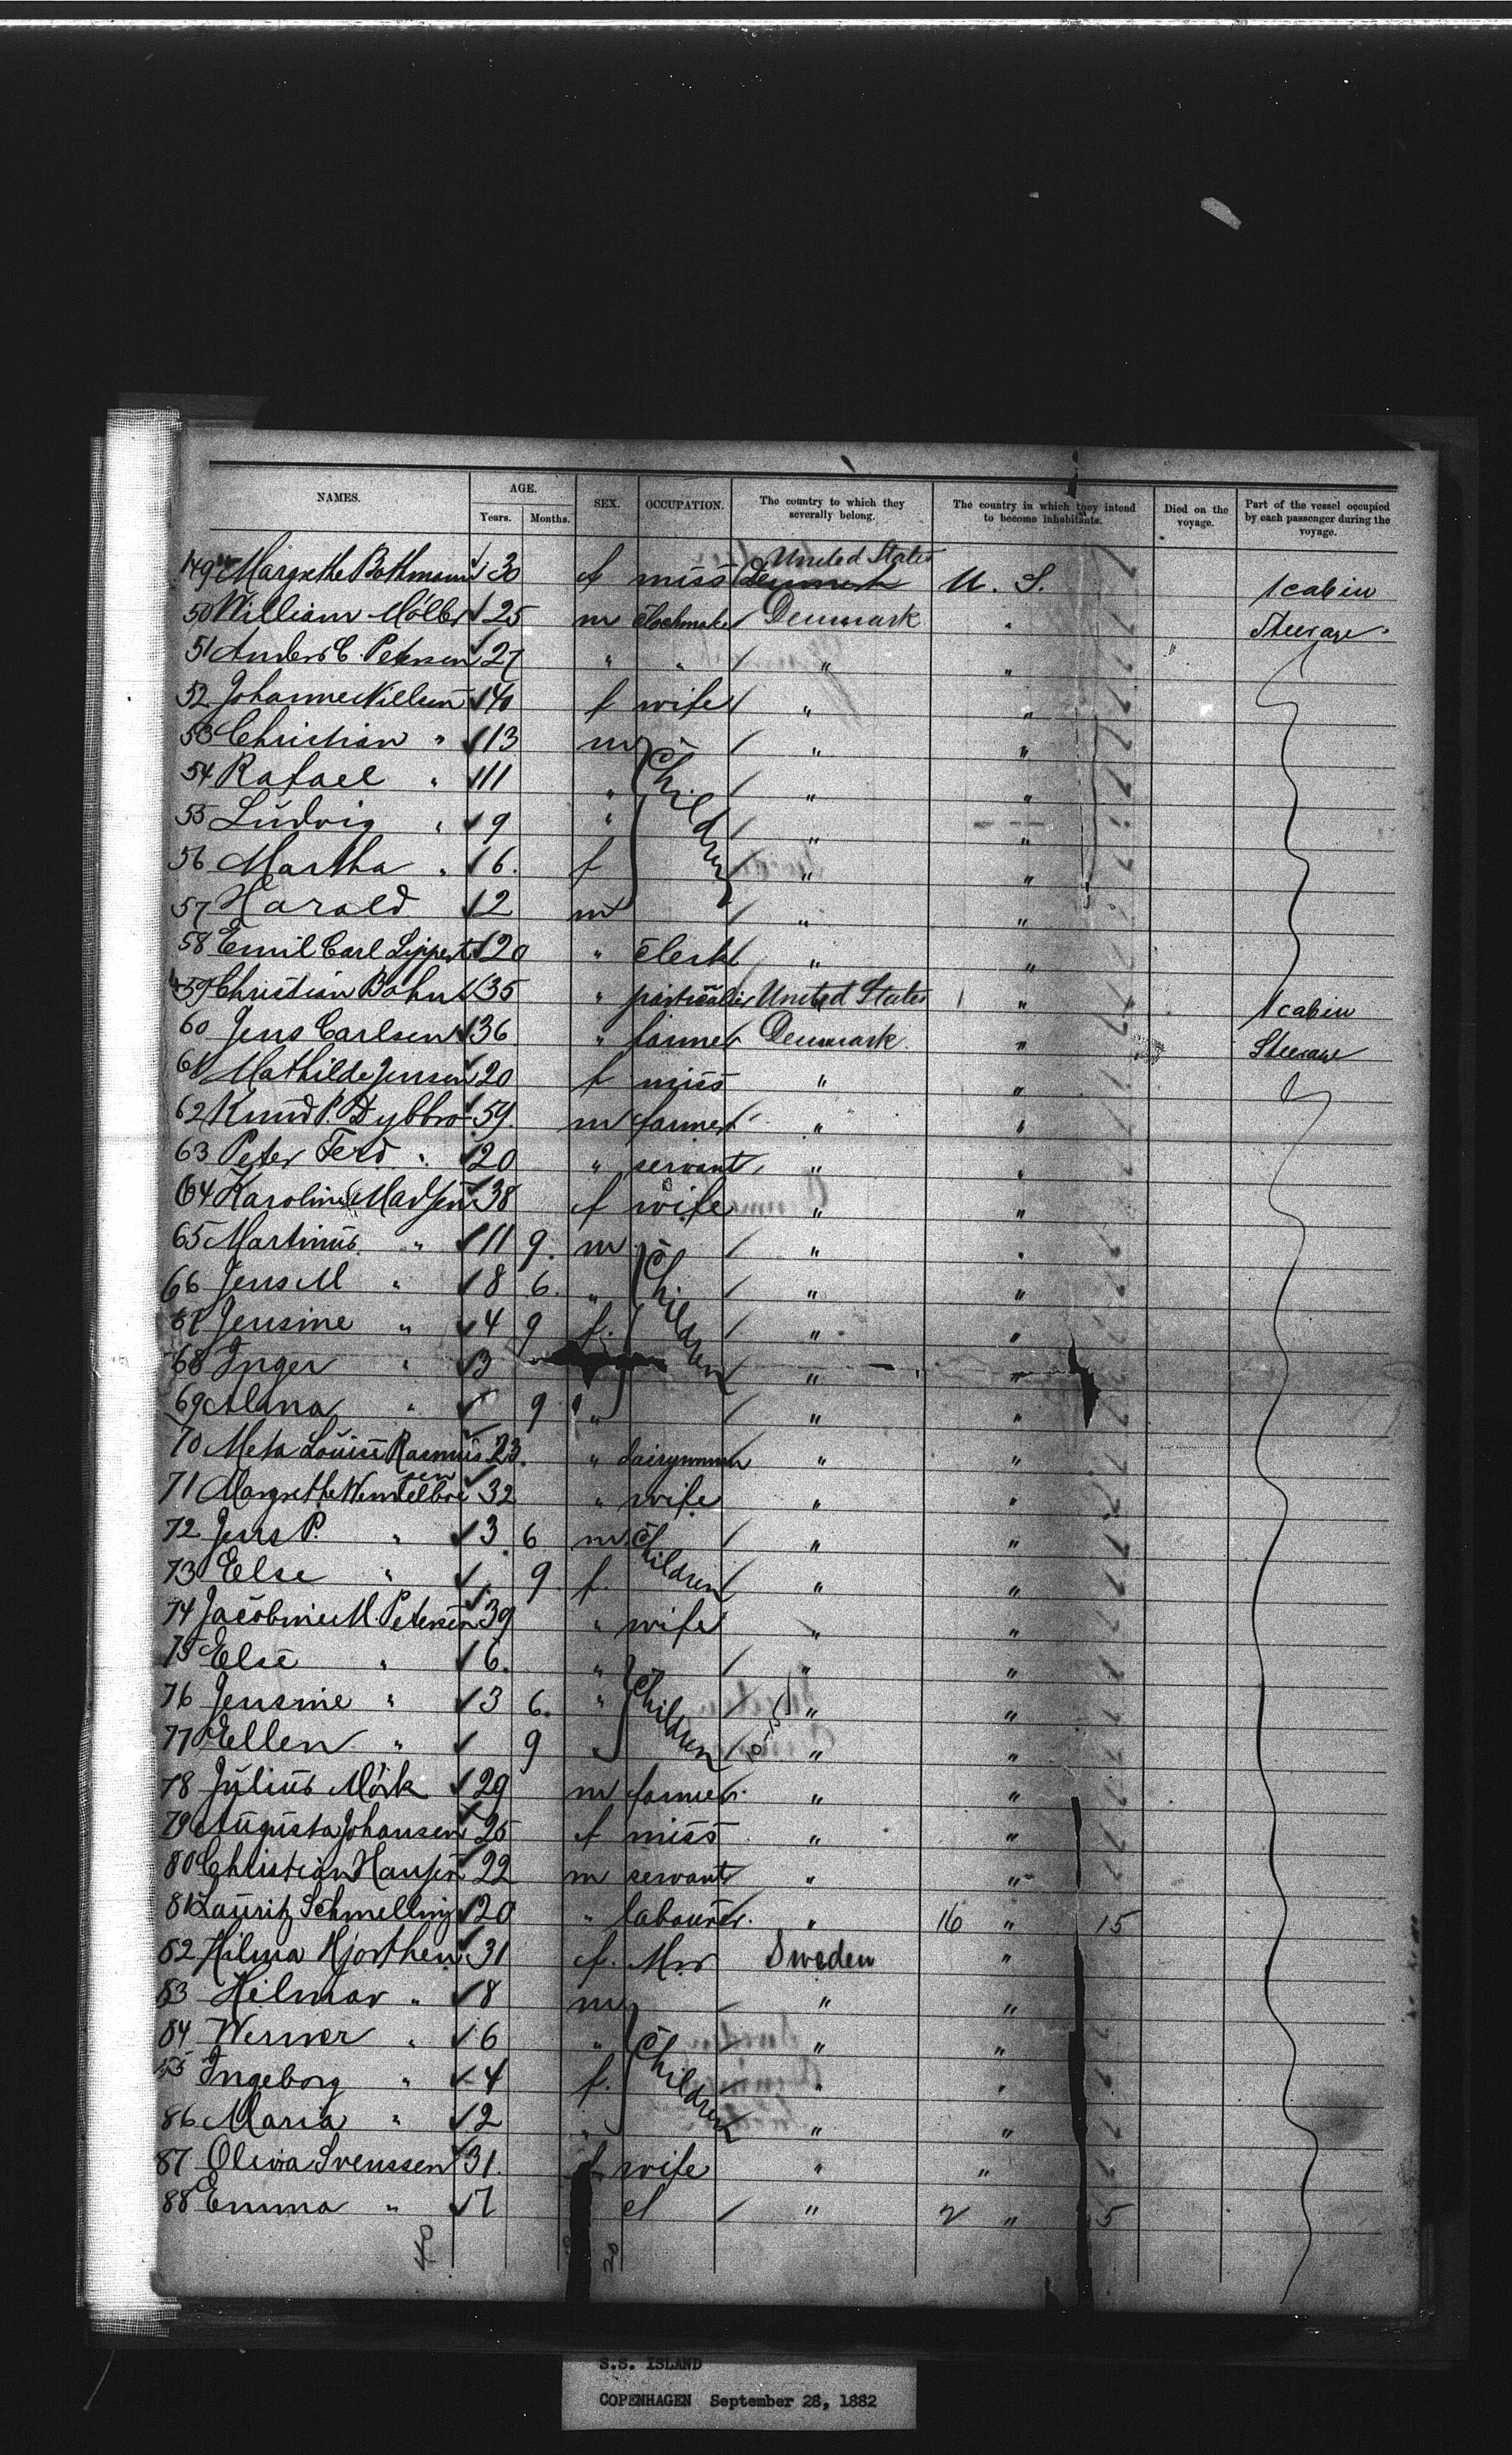 NAMES. AGE. Years. Months. SEX. OCCUPATION. The country to which they severally belong. The country in which they intend to become inhabitants. Died on the voyage. Part of the vessel occupied by each passenger during the voyage.
United States
149 Margrethe Bothmann 30 f miss Denmark U. S. 1 cabin
50 William Möller 25 m Denmark " Steerage
51 Anders C. Petersen 27 " " " "
52 Johanne Nielsen 40 f wife " "
53 Christian " 13 m Children " "
54 Rafael " 11 " " "
55 Ludvig " 9 " " "
56 Martha " 6. f " "
57 Harald 2 m " "
58 Emil Carl Lippert 20 " clerk " "
59 Christian Bohn 35 " United States " 1 cabin
60 Jens Carlsen 36 " farmer Denmark " Steerage
61 Mathilde Jensen 20 f miss " "
62 Knud P. Dybbro 59. m farmer " "
63 Peter Ferd " 20 " servant " "
64 Karoline Madsen 38 f wife " "
65 Martinus " 11 9. m Children " "
66 Jens M " 8 6. " " "
67 Jensine " 4 9 f. " "
68 Inger " 3 " "
69 Alma " 9 " " "
70 Meta Louise Rasmussen 23. " dairywoman " "
71 Margrethe Wendelboe 32 " wife " "
72 Jens P. " 3. 6 m Children " "
73 Else " 9 f. " "
74 Jacobine M. Petersen 39 " wife " "
75 Else " 6. " Children " "
76 Jensine " 3 6. " " "
77 Ellen " 9 " "
78 Julius Mörk 29 m farmer " "
79 Augusta Johansen 25 f miss " "
80 Christian Hansen 22 m servant " "
81 Lauritz Schmelling 20 " labourer. " 16 " 15
82 Hilma Hjorthen 31 f. Mrs Sweden "
83 Hilmar " 8 m Children " "
84 Werner " 6 " " "
85 Ingeborg " 4 f. " "
86 Maria " 2 " " "
87 Olivia Svenssen 31. f wife " "
88 Emma " 7 " 2 " 5
40 20
S.S. ISLAND
COPENHAGEN September 28, 1882